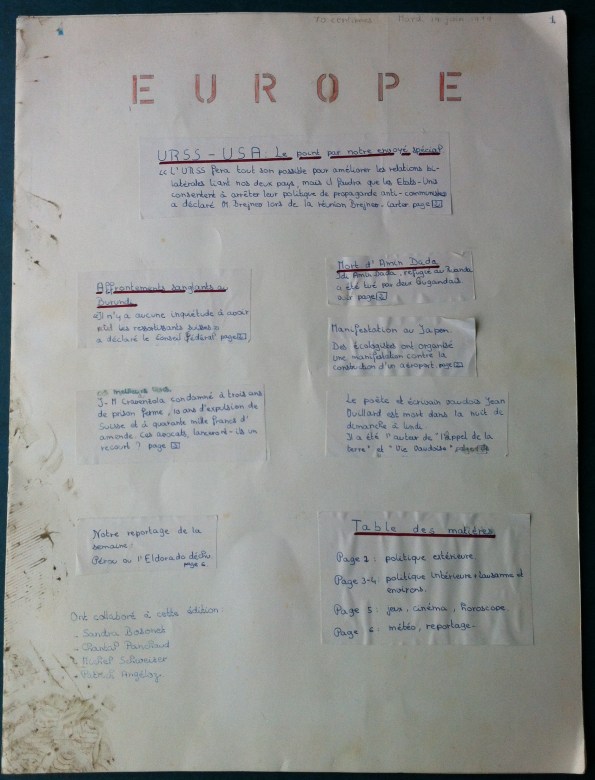 Mardi 19 juin 1979
1
EUROPE
URSS - USA : Le point par notre envoyé spécial
"L'URSS fera tout son possible pour améliorer les relations bi-
latérales liant nos deux pays, mais il faudra que les Etats-Unis
consentent à arrêter leur politique de propagande anti-communiste
a déclaré M. Brejnev lors de la réunion Brejnev-Carter page 2
Affrontements sanglants au
Burundi
"Il n'y a aucune inquiétude à avoir
les ressortissants suisses"
a déclaré le Conseil Fédéral page 2
J-M Cravenzola condamné à trois ans
de prison ferme, 10 ans d'expulsion de
Suisse et à quarante mille francs d'
amende. Ces avocats, lanceront-ils un
recourt ? page
Notre reportage de la
semaine :
Pérou ou l'Eldorado déchu
page 6.
Ont collaboré à cette édition :
- Sandra
- Chantal Panchaud
- Michel
- Patrick Angéloz
Mort d'Amin Dada
Idi Amin Dada, réfugié au
a été tué par deux Ougandais
page 2
Manifestation au Japon
Des écologistes ont organisé
une manifestation contre la
construction d'un aéroport. page 2
Le poète et écrivain vaudois Jean
Villard est mort dans la nuit de
dimanche à lundi.
Il a été l'auteur de "l'Appel de la
terre" et "Vie Vaudoise"
Table des matières
Page 2 : politique extérieure.
Page 3-4 : politique intérieure + Lausanne et
environs.
Page 5 : jeux, cinéma, horoscope.
Page 6 : météo, reportage.